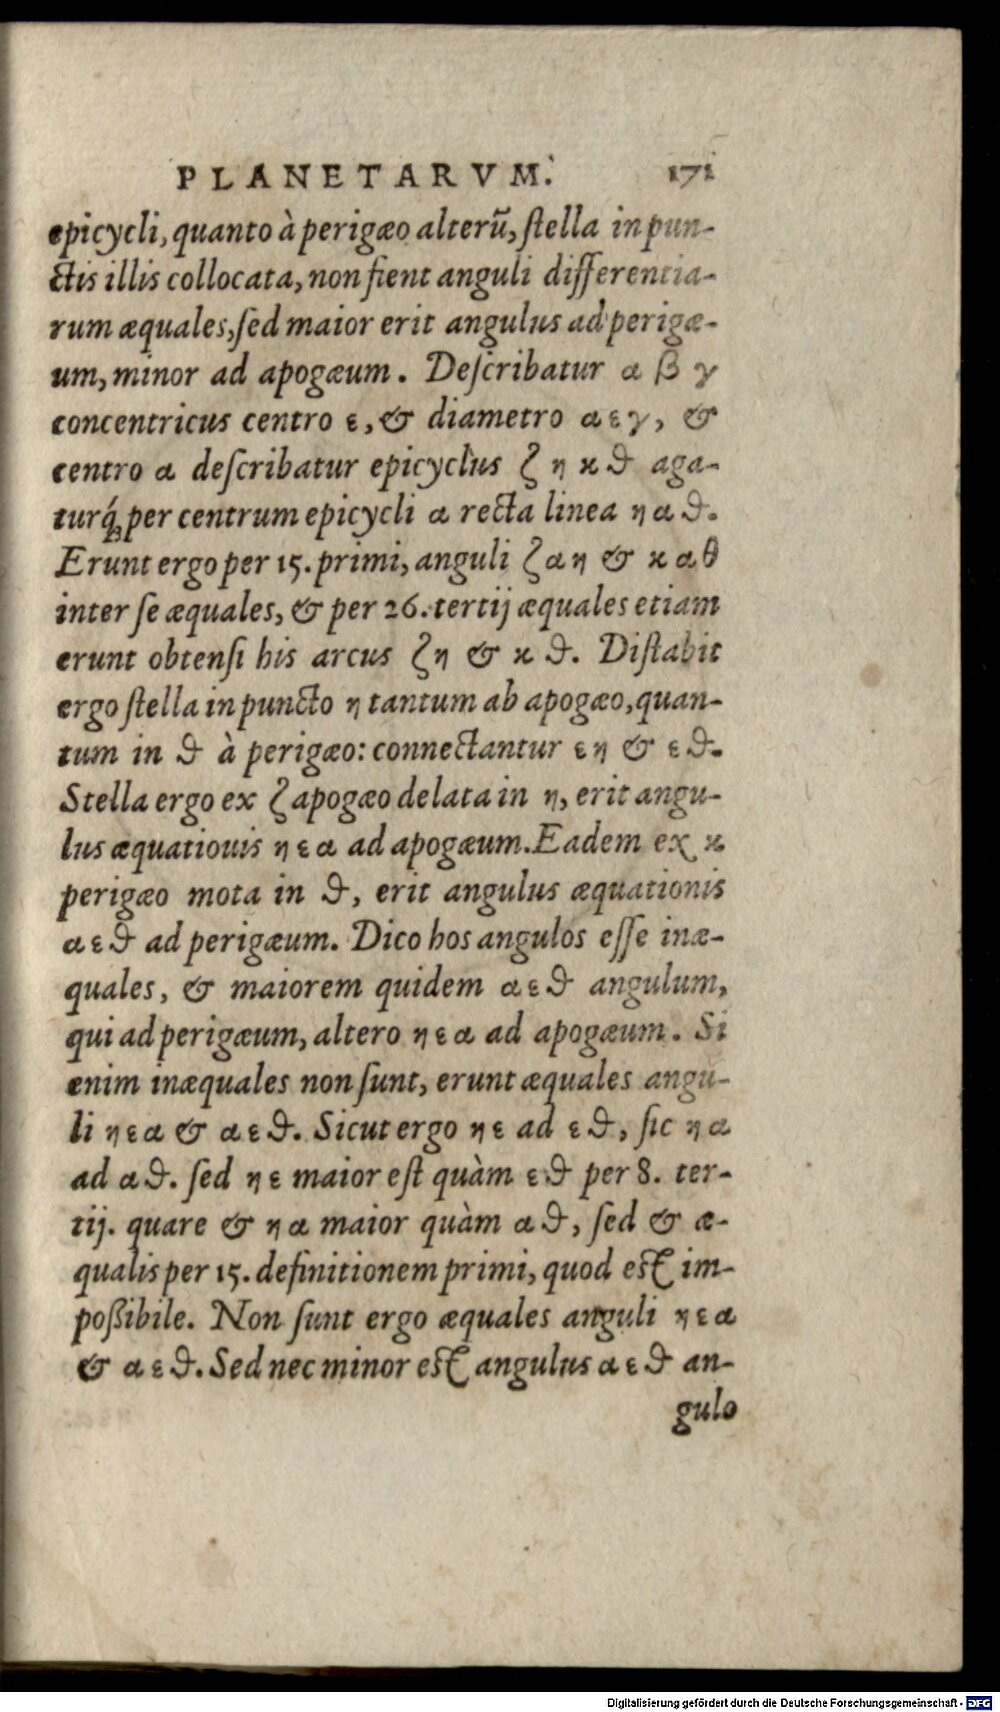 PLANETARVM. 171
epicycli, quanto à perigæo alterũ, ſtella in pun-
ctis illis collocata, non fient anguli differentia-
rum æquales, ſed maior erit angulus ad perigæ-
um, minor ad apogæum. Deſcribatur α β γ
concentricus centro ε, & diametro α ε γ, &
centro α deſcribatur epicyclus ζ η ϰ ϑ aga-
turq́; per centrum epicycli α recta linea η α ϑ.
Erunt ergo per 15. primi, anguli ζ α η & ϰ α θ
inter ſe æquales, & per 26. tertij æquales etiam
erunt obtenſi his arcus ζ η & ϰ ϑ. Diſtabit
ergo ſtella in puncto η tantum ab apogæo, quan-
tum in ϑ à perigæo: connectantur ε η & ε ϑ.
Stella ergo ex ζ apogæo delata in η, erit angu-
lus æquatiouis η ε α ad apogæum. Eadem ex ϰ
perigæo mota in ϑ, erit angulus æquationis
α ε ϑ ad perigæum. Dico hos angulos eſſe inæ-
quales, & maiorem quidem α ε ϑ angulum,
qui ad perigæum, altero η ε α ad apogæum. Si
enim inæquales non ſunt, erunt æquales angu-
li η ε α & α ε ϑ. Sicut ergo η ε ad ε ϑ, ſic η α
ad α ϑ. ſed η ε maior eſt quàm ε ϑ per 8. ter-
tij. quare & η α maior quàm α ϑ, ſed & æ-
qualis per 15. definitionem primi, quod eſt im-
poßibile. Non ſunt ergo æquales anguli η ε α
& α ε ϑ. Sed nec minor eſt angulus α ε ϑ an-
gulo
Digitalisierung gefördert durch die Deutsche Forschungsgemeinschaft - DFG